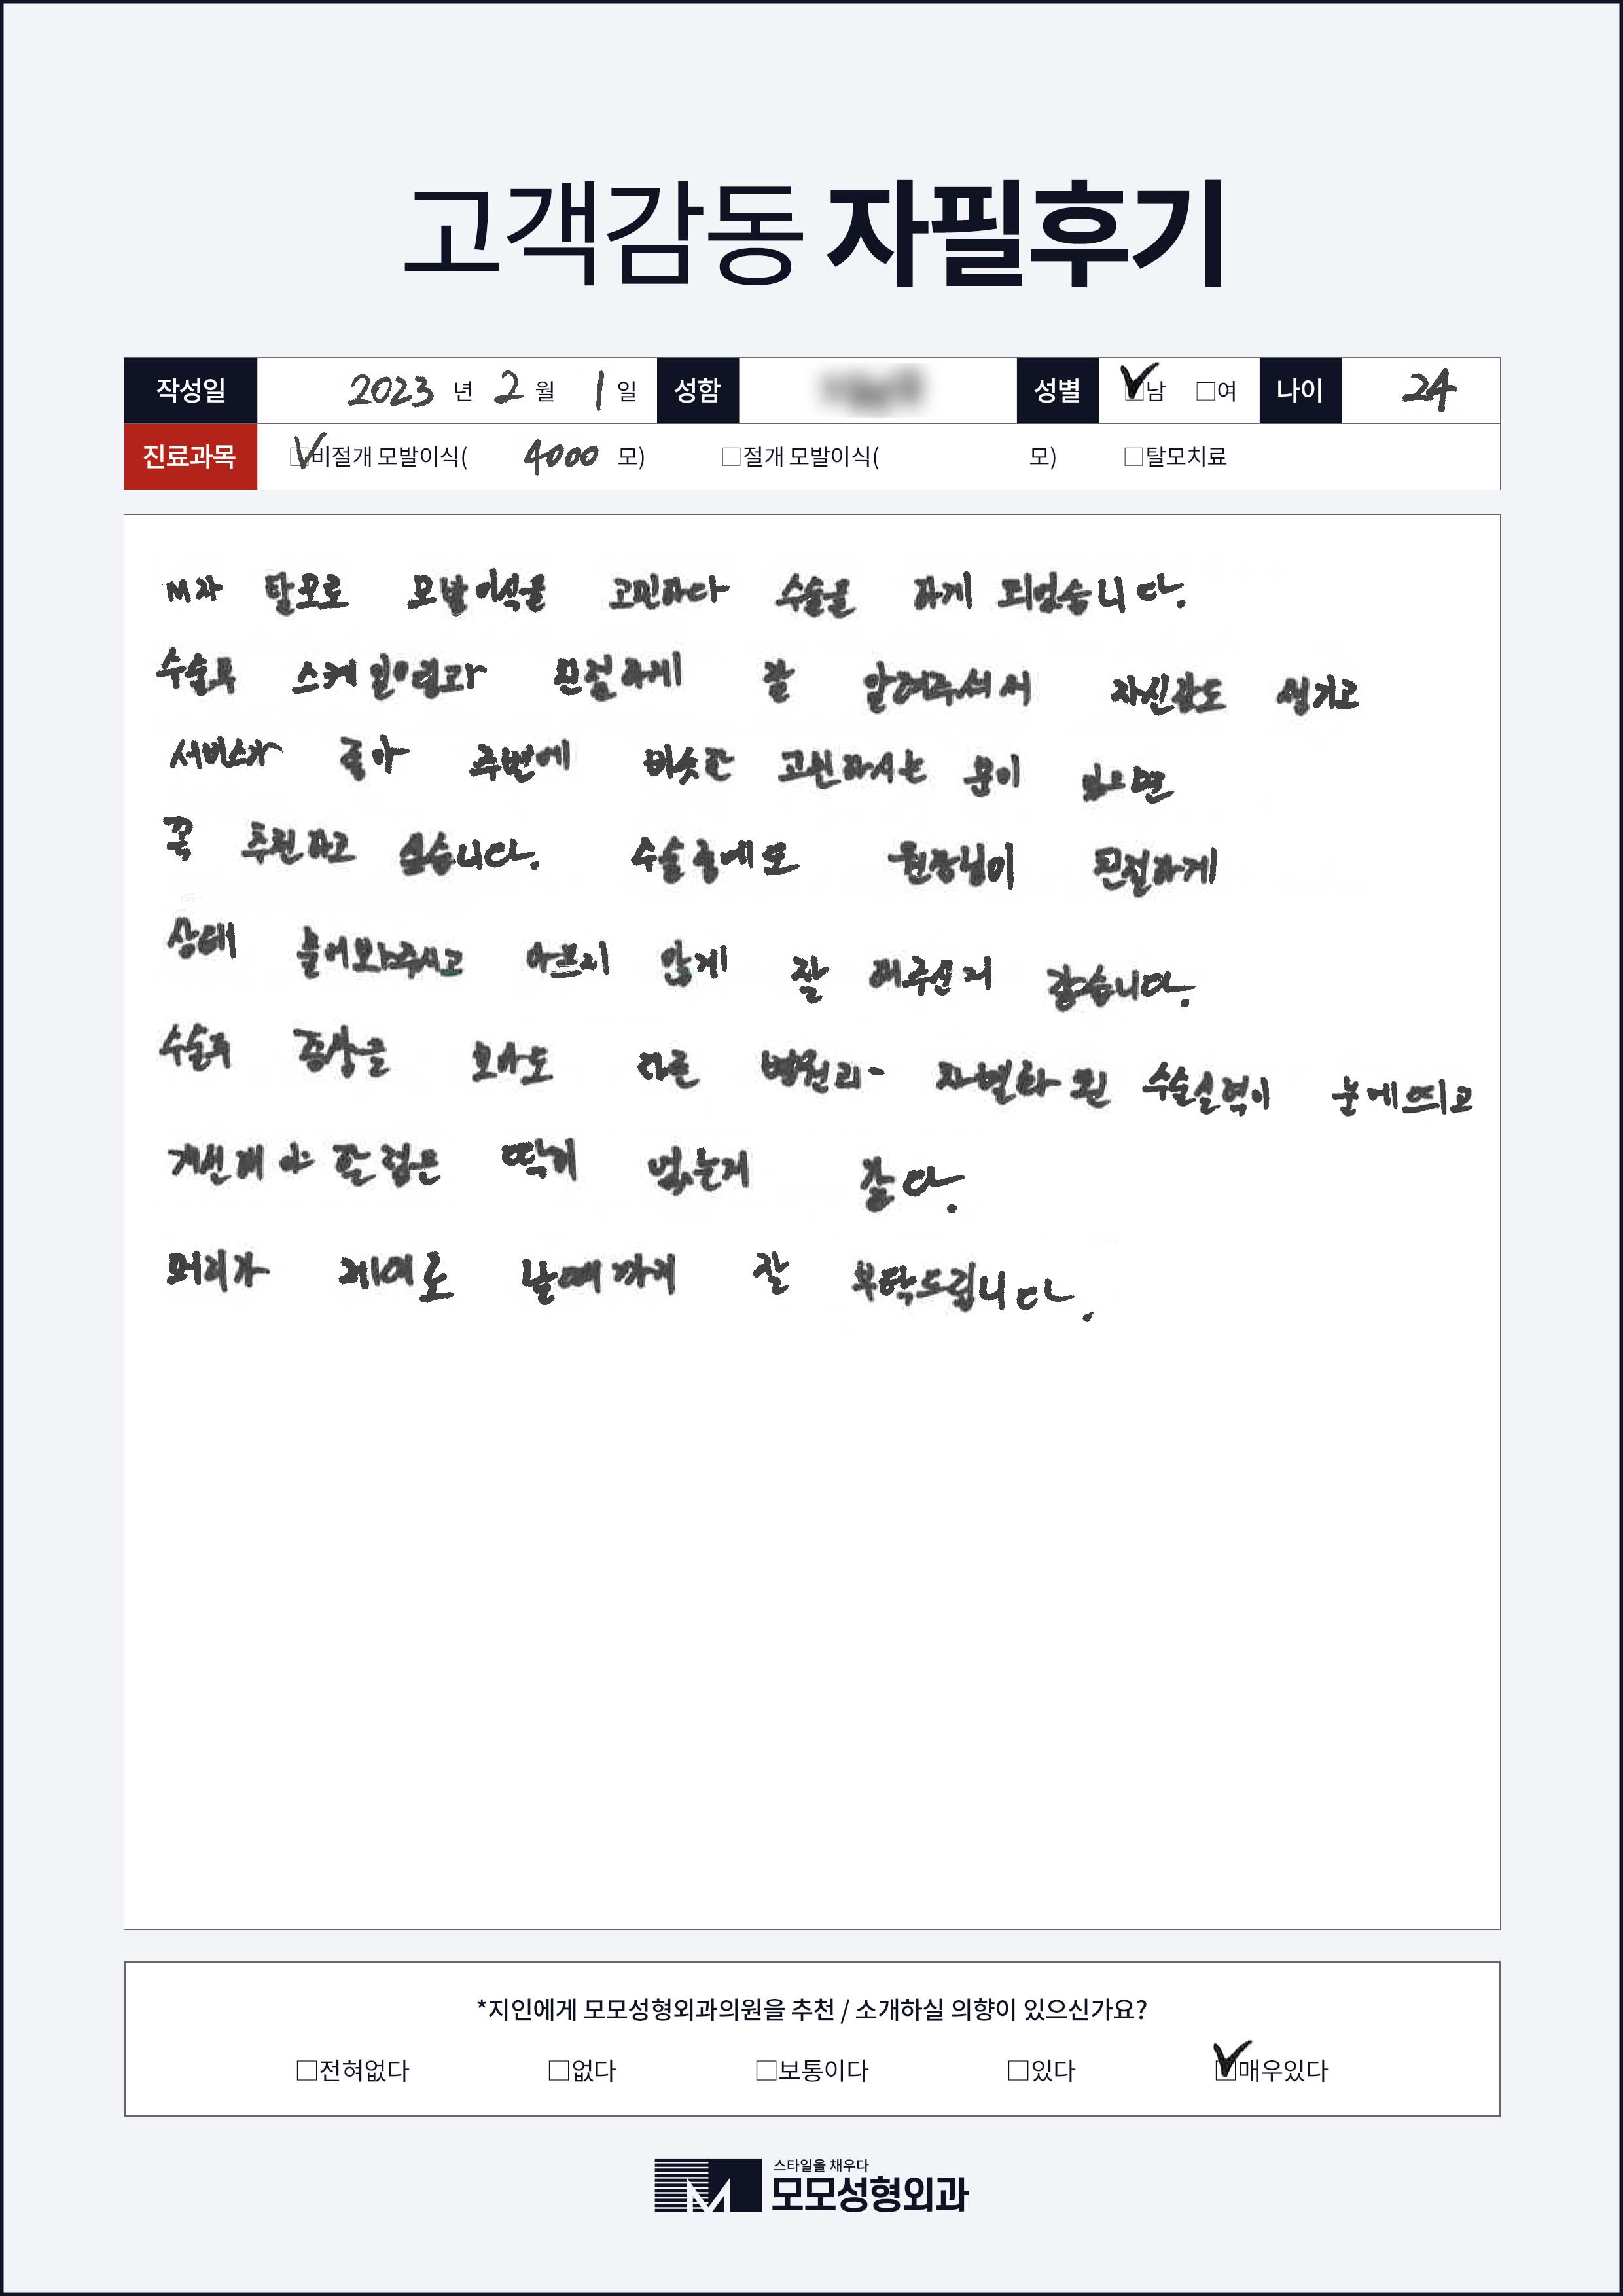 고객감동 자필후기
작성일 2023 년 2 월 1 일 성함 성별 ☑남 □여 나이 24
진료과목 ☑비절개 모발이식( 4000 모) □절개 모발이식( 모) □탈모치료
M자 탈모로 모발이식을 고민하다 수술을 하게 되었습니다.
수술후 친절하게 잘 알려주셔서 자신감도 생기고
서비스가 좋아 주변에 비슷한 고민하시는 분이 있으면
꼭 추천하고 싶습니다. 수술중에도 원장님이 친절하게
상태 물어봐주시고 아프지 않게 잘 해주신거 같습니다.
수술후 증상을 보아도 다른 병원과 차별화 된 수술실력이 눈에띄고
개선해야 할 점은 딱히 없는거 같다.
머리가 제대로 날때까지 잘 부탁드립니다.
*지인에게 모모성형외과의원을 추천 / 소개하실 의향이 있으신가요?
□전혀없다 □없다 □보통이다 □있다 ☑매우있다
스타일을 채우다
모모성형외과